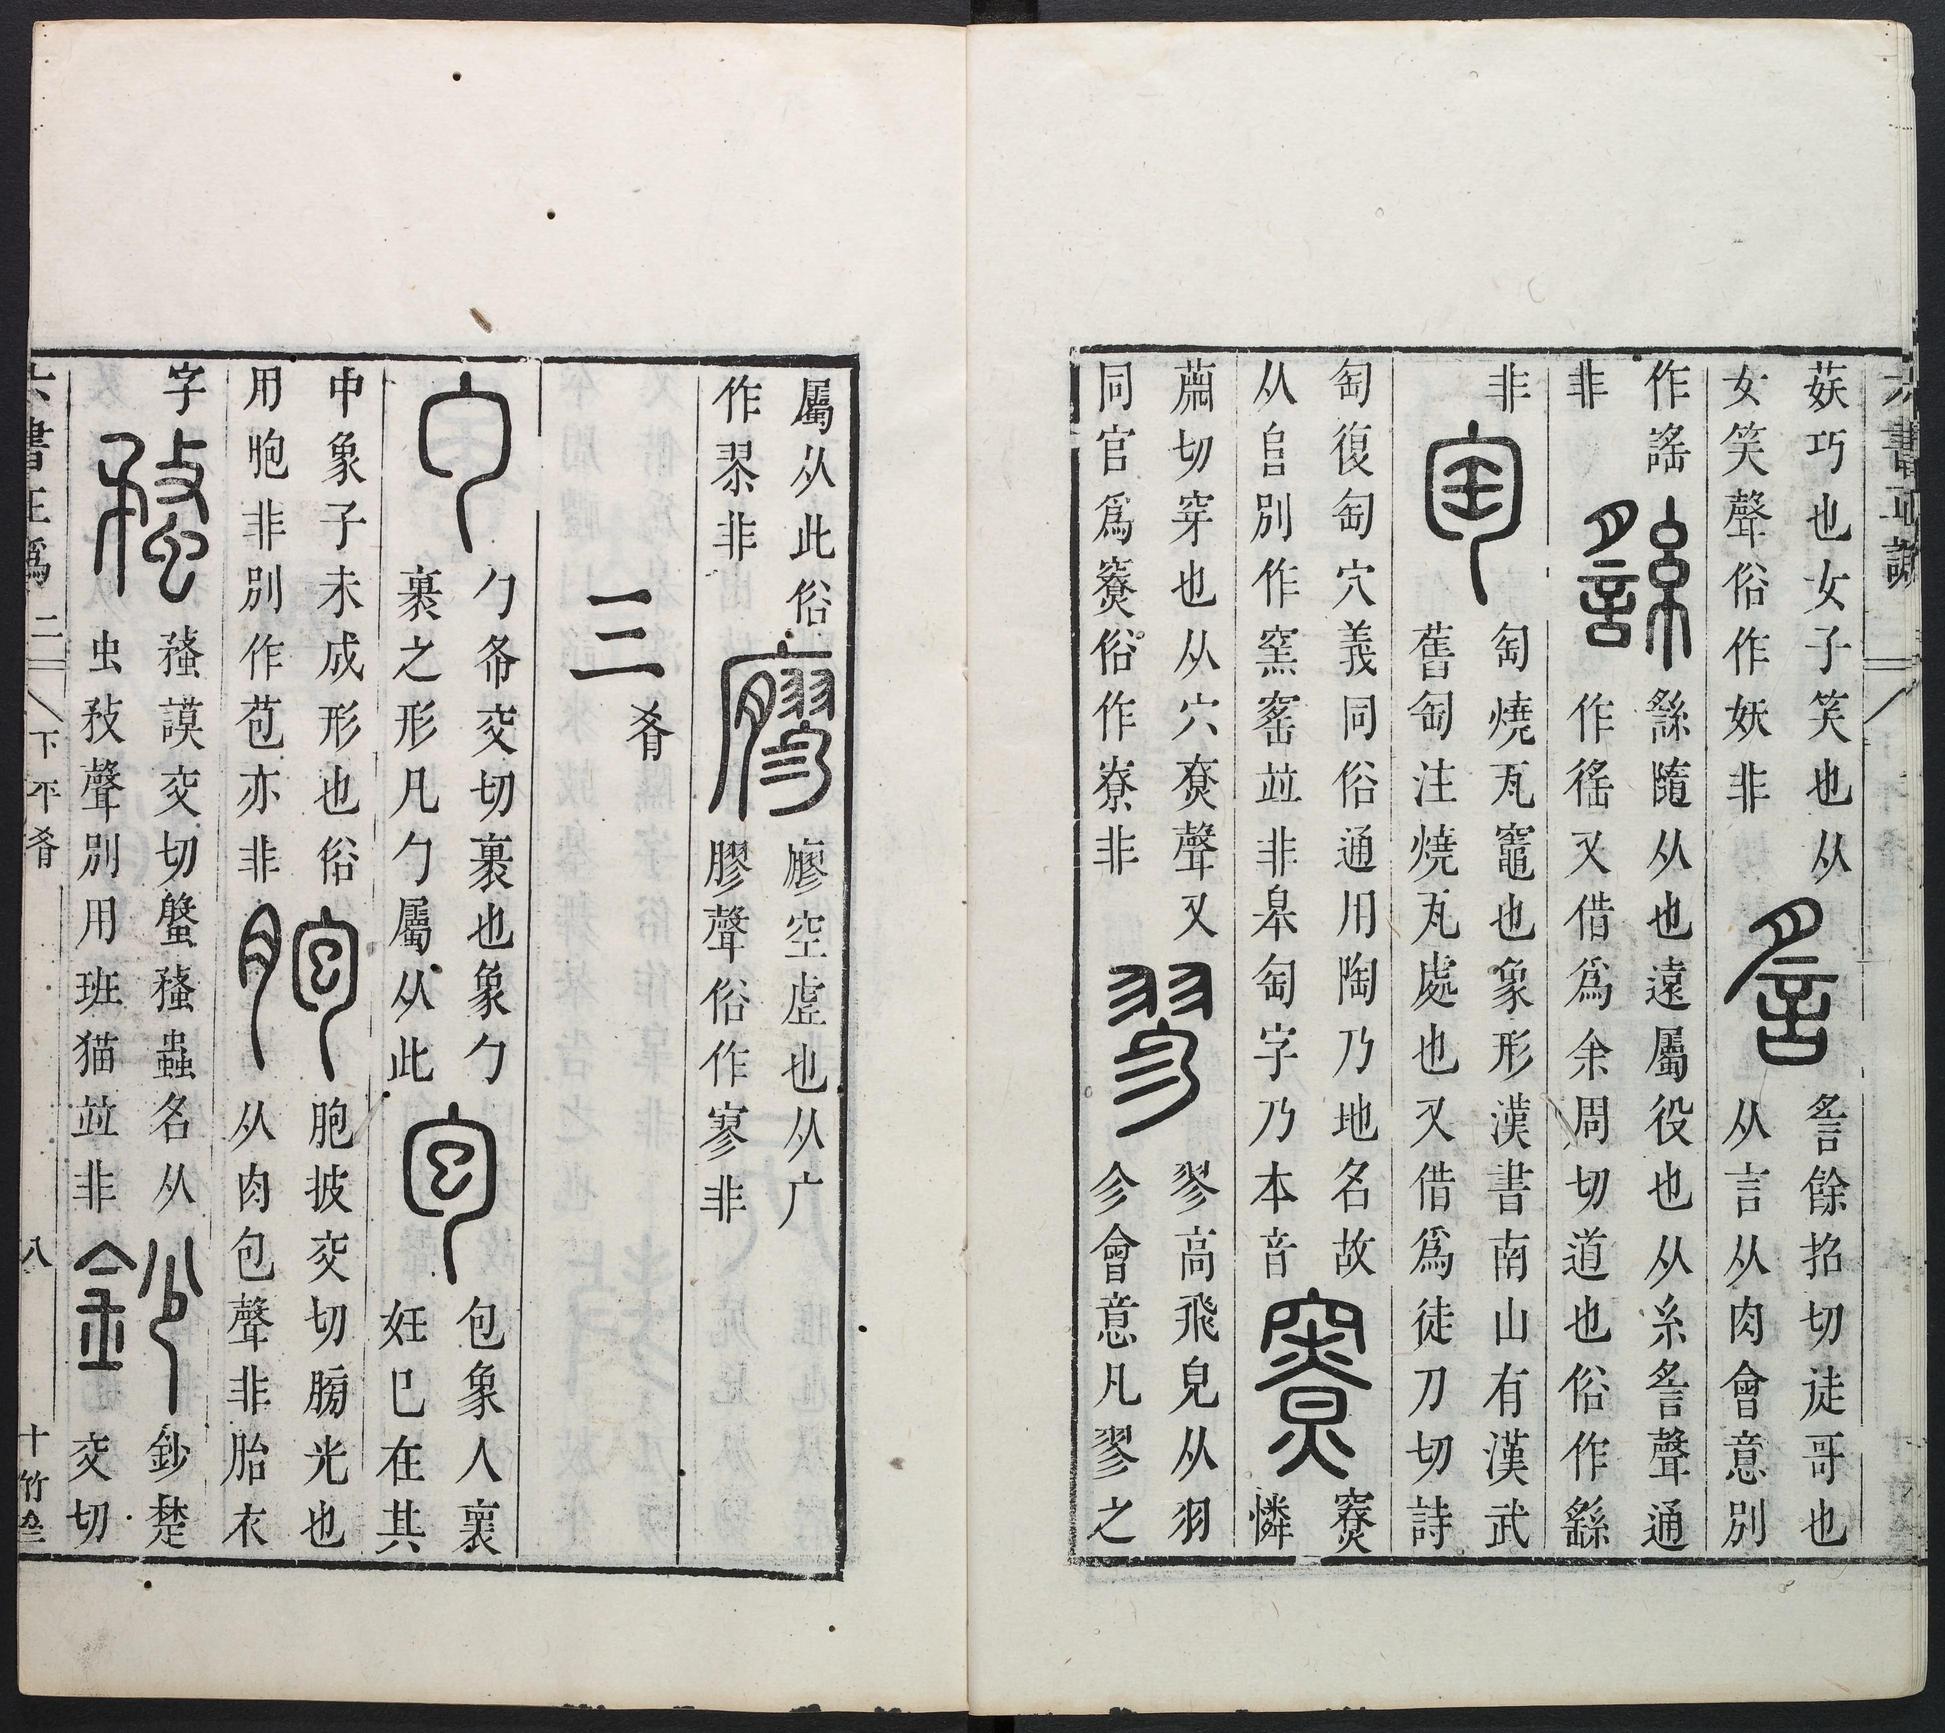 媄巧也女子笑也从
女笑聲俗作妖非
䚻餘招切徒哥也
从言从肉會意別
作謠
非
繇隨从也遠屬役也从糸䚻聲通
作徭又借爲余周切道也俗作繇
非
匋燒瓦竈也象形漢書南山有漢武
舊匋注燒瓦處也又借爲徒刀切詩
匋復匋穴義同俗通用陶乃地名故
从𨸏別作窯窰竝非皋匋字乃本音
竂憐
蕭切穿也从穴尞聲又
同官爲竂俗作寮非
翏高飛皃从羽
㐱會意凡翏之
屬从此俗
作翏非
廫空虛也从广
膠聲俗作寥非
三
肴
勹布交切裹也象勹
裹之形凡勹屬从此
包象人裹
妊巳在其
中象子未成形也俗
用胞非別作苞亦非
胞披交切膀光也
从肉包聲非胎衣
字
蝥謨交切螌蝥蟲名从
虫敄聲別用班猫竝非
鈔楚
交切
六書正譌
二
下平肴
八
十竹齋